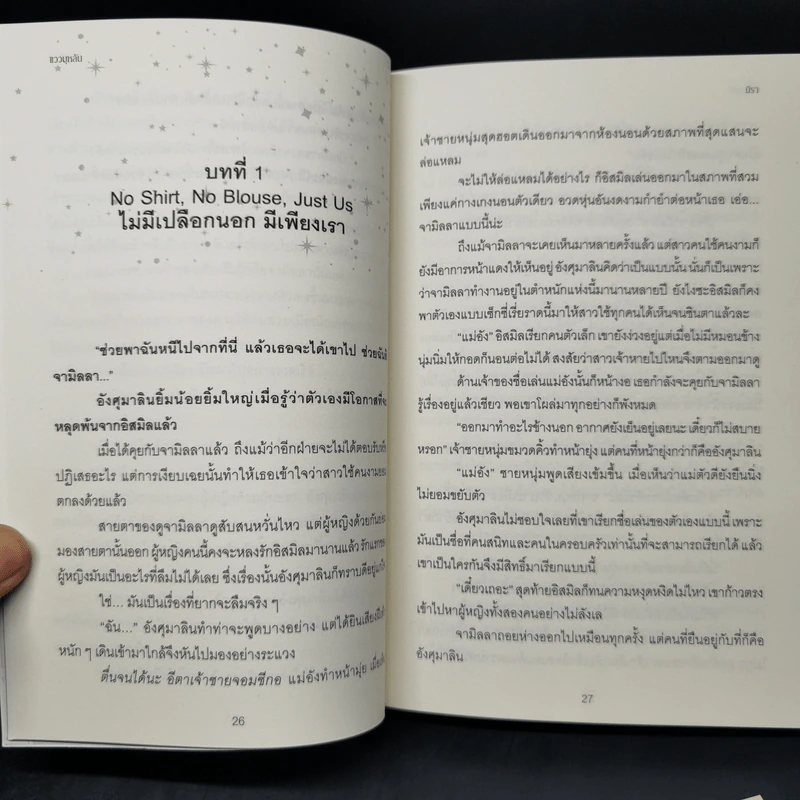 แววบุหลัน
บทที่ 1
No Shirt, No Blouse, Just Us
ไม่มีเปลือกนอก มีเพียงเรา
"ช่วยพาฉันหนีไปจากที่นี่ แล้วเธอจะได้เขาไป ช่วยฉันที
จามิลลา..."
อังศุมาลินยิ้มน้อยยิ้มใหญ่เมื่อรู้ว่าตัวเองมีโอกาสที่จะ
หลุดพ้นจากอิสมิลแล้ว
เมื่อได้คุยกับจามิลลาแล้ว ถึงแม้ว่าอีกฝ่ายจะไม่ได้ตอบรับหรือ
ปฏิเสธอะไร แต่การเงียบเฉยนั้นทำให้เธอเข้าใจว่าสาวใช้คนงามยอม
ตกลงด้วยแล้ว
สายตาของดูจามิลลาดูสับสนหวั่นไหว แต่ผู้หญิงด้วยกันย่อม
มองสายตานั้นออก ผู้หญิงคนนี้คงจะหลงรักอิสมิลมานานแล้ว รักแรกของ
ผู้หญิงมันเป็นอะไรที่ลืมไม่ได้เลย ซึ่งเรื่องนั้นอังศุมาลินก็ทราบดีอยู่แก่ใจ
ใช่... มันเป็นเรื่องที่ยากจะลืมจริง ๆ
"ฉัน..." อังศุมาลินทำท่าจะพูดบางอย่าง แต่ได้ยินเสียงฝีเท้า
หนัก ๆ เดินเข้ามาใกล้จึงหันไปมองอย่างระแวง
ตื่นจนได้นะ อีตาเจ้าชายจอมซีกอ แม่อังทำหน้ามุ่ย เมื่อเห็น
26
นิรา
เจ้าชายหนุ่มสุดฮอตเดินออกมาจากห้องนอนด้วยสภาพที่สุดแสนจะ
ล่อแหลม
จะไม่ให้ล่อแหลมได้อย่างไร ก็อิสมิลเล่นออกมาในสภาพที่สวม
เพียงแค่กางเกงนอนตัวเดียว อวดหุ่นอันงดงามกำยำต่อหน้าเธอ เอ่อ...
จามิลลาแบบนี้น่ะ
ถึงแม้จามิลลาจะเคยเห็นมาหลายครั้งแล้ว แต่สาวคนใช้คนงามก็
ยังมีอาการหน้าแดงให้เห็นอยู่ อังศุมาลินคิดว่าเป็นแบบนั้น นั่นก็เป็นเพราะ
ว่าจามิลลาทำงานอยู่ในตำหนักแห่งนี้มานานหลายปี ยังไงซะอิสมิลก็คง
พาตัวเองแบบเซ็กซี่เรี่ยราดนี้มาให้สาวใช้ทุกคนได้เห็นจนชินตาแล้วละ
"แม่อัง" อิสมิลเรียกคนตัวเล็ก เขายังง่วงอยู่แต่เมื่อไม่มีหมอนข้าง
นุ่มนิ่มให้กอดก็นอนต่อไม่ได้ สงสัยว่าสาวเจ้าหายไปไหนจึงตามออกมาดู
ด้านเจ้าของชื่อเล่นแม่อังนั้นก็หน้างอ เธอกำลังจะคุยกับจามิลลา
รู้เรื่องอยู่แล้วเชียว พอเขาโผล่มาทุกอย่างก็พังหมด
"ออกมาทำอะไรข้างนอก อากาศยังเย็นอยู่เลยนะ เดี๋ยวก็ไม่สบาย
หรอก" เจ้าชายหนุ่มขมวดคิ้วทำหน้ายุ่ง แต่คนที่หน้ายุ่งกว่าก็คืออังศุมาลิน
"แม่อัง" ชายหนุ่มพูดเสียงเข้มขึ้น เมื่อเห็นว่าแม่ตัวดียังยืนนิ่ง
ไม่ยอมขยับตัว
อังศุมาลินไม่ชอบใจเลยที่เขาเรียกชื่อเล่นของตัวเองแบบนี้ เพราะ
มันเป็นชื่อที่คนสนิทและคนในครอบครัวเท่านั้นที่จะสามารถเรียกได้ แล้ว
เขาเป็นใครกันจึงมีสิทธิ์มาเรียกแบบนี้
"เดี๋ยวเถอะ" สุดท้ายอิสมิลก็ทนความหงุดหงิดไม่ไหว เขาก้าวตรง
เข้าไปหาผู้หญิงทั้งสองคนอย่างไม่ลังเล
จามิลลาถอยห่างออกไปเหมือนทุกครั้ง แต่คนที่ยืนอยู่กับที่ก็คือ
อังศุมาลิน
27